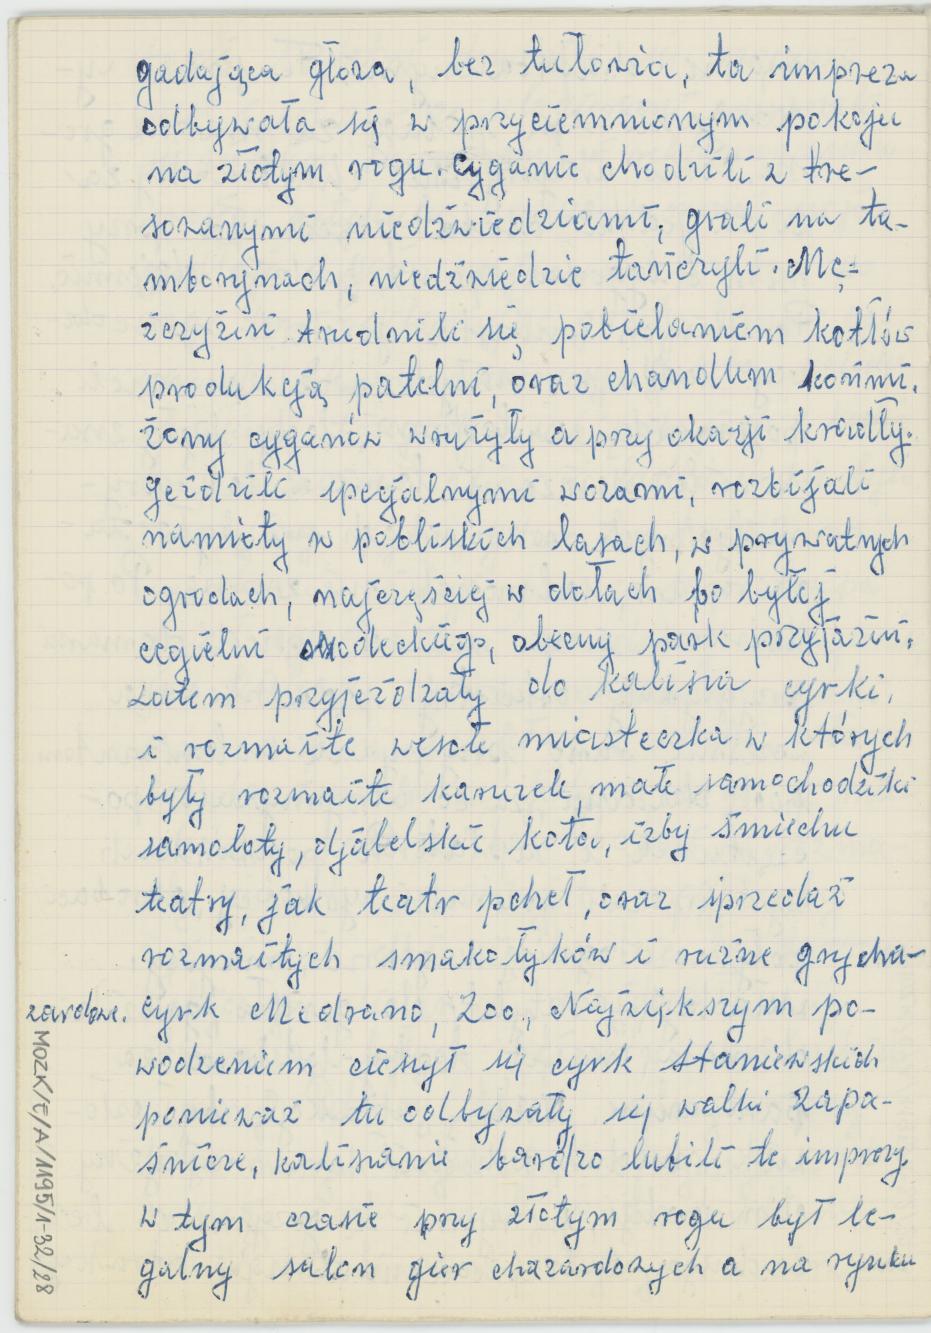 gadająca głowa, bez tułowia, ta impreza
odbywała się w przyciemnionym pokoju
na złotym rogu. Cyganie chodzili z tre-
sowanymi niedźwiedziami, grali na ta-
mborynach, niedźwiedzie tańczyli. Mę-
żczyźni trudnili się pobielaniem kotłów
produkcją patelni, oraz chandlem końmi.
żony cyganów wrużyły a przy okazji kradły.
Jeździli specjalnymi wozami, rozbijali
namioty w pobliskich lasach, w prywatnych
ogrodach, najczęściej w dołach po byłej
cegielni obecny park przyjaźni.
Latem przyjeżdzały do kalisza cyrki,
i rozmaite wesołe miasteczka w których
były rozmaite karuzele, małe samochodziki
samoloty, djabelskie koła, izby śmiechu
teatry, jak teatr pcheł, oraz sprzedaż
rozmaitych smakołyków i rużne gry cha-
zardowe. Cyrk Medrano, Zoo, Największym po-
wodzeniem cieszył się cyrk Staniewskich
ponieważ tu odbywały się walki zapa-
śnicze, kaliszanie bardzo lubili te imprezy.
w tym czasie przy złotym rogu był le-
galny salon gier chazardowych a na rynku
MOZK/E/A/M95/1-32/28